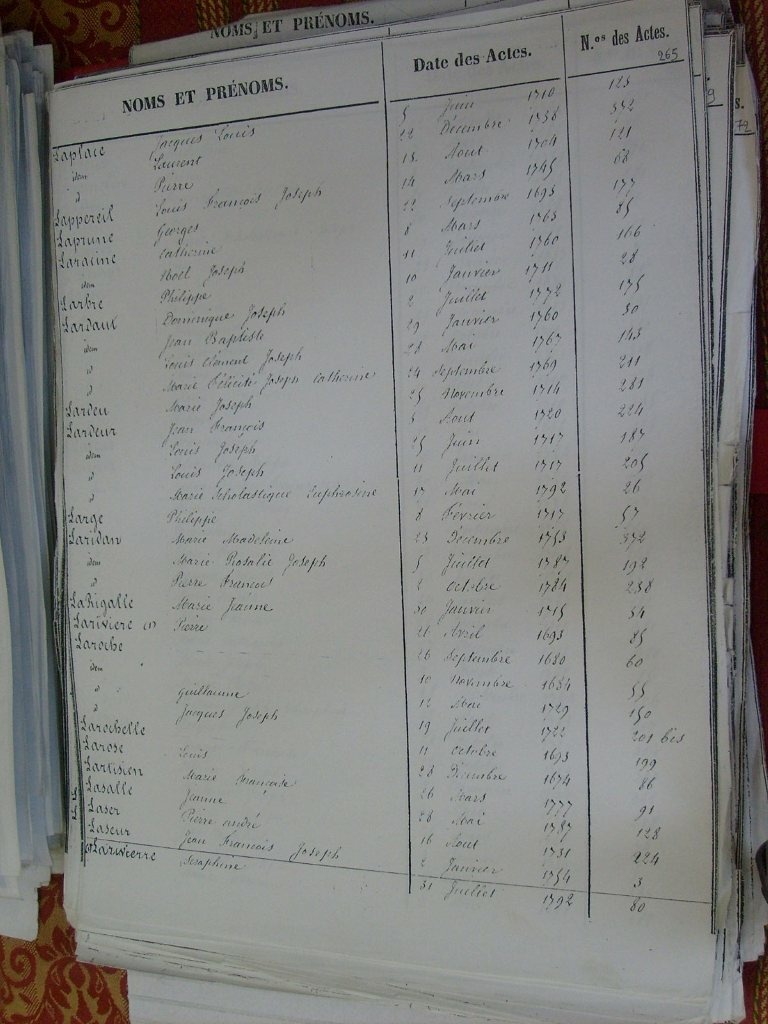 NOMS ET PRÉNOMS.
NOMS ET PRÉNOMS. Date des Actes. N.os des Actes.
265
Laplace Jacques Louis 5 Juin 1710 123
idem Laurent 22 Décembre 1736 332
d Pierre 18 Aout 1704 121
Lappereil Louis François Joseph 14 Mars 1745 68
Laprune Georges 22 Septembre 1693 177
Laraine Catherine 8 Mars 1763 85
idem Noël Joseph 11 Juillet 1760 166
Larbre Philippe 10 Janvier 1711 28
Lardaul Domenique Joseph 2 Juillet 1772 175
idem Jean Baptiste 29 Janvier 1760 30
d Louis Clément Joseph 28 Mai 1767 143
d Marie Félicité Joseph Catherine 24 Septembre 1769 211
Lardeu Marie Joseph 25 Novembre 1714 281
Lardeur Jean François 6 Aout 1720 224
idem Louis Joseph 25 Juin 1717 187
d Louis Joseph 11 Juillet 1717 205
d Marie Scholastique Euphrosine 17 Mai 1792 26
Large Philippe 8 Février 1717 57
Laridan Marie Madeleine 23 Décembre 1753 372
idem Marie Rosalie Joseph 5 Juillet 1787 192
d Pierre François 2 Octobre 1784 238
LaRigalle Marie Jeanne 30 Janvier 1715 34
Lariviere (1) Pierre 21 Avril 1693 85
Laroche 26 Septembre 1680 60
idem 10 Novembre 1684 55
d Guillaume 12 Mai 1729 150
d Jacques Joseph 19 Juillet 1722 201 bis
Larochelle 11 Octobre 1693 199
Larose Louis 28 Décembre 1674 86
Lartisien Marie Françoise 26 Mars 1777 91
Lasalle Jeanne 28 Mai 1787 128
Laser Pierre andré 16 Aout 1731 224
Laseur Jean François Joseph 2 Janvier 1754 3
(1) Larivierre Seraphine 31 Juillet 1792 80